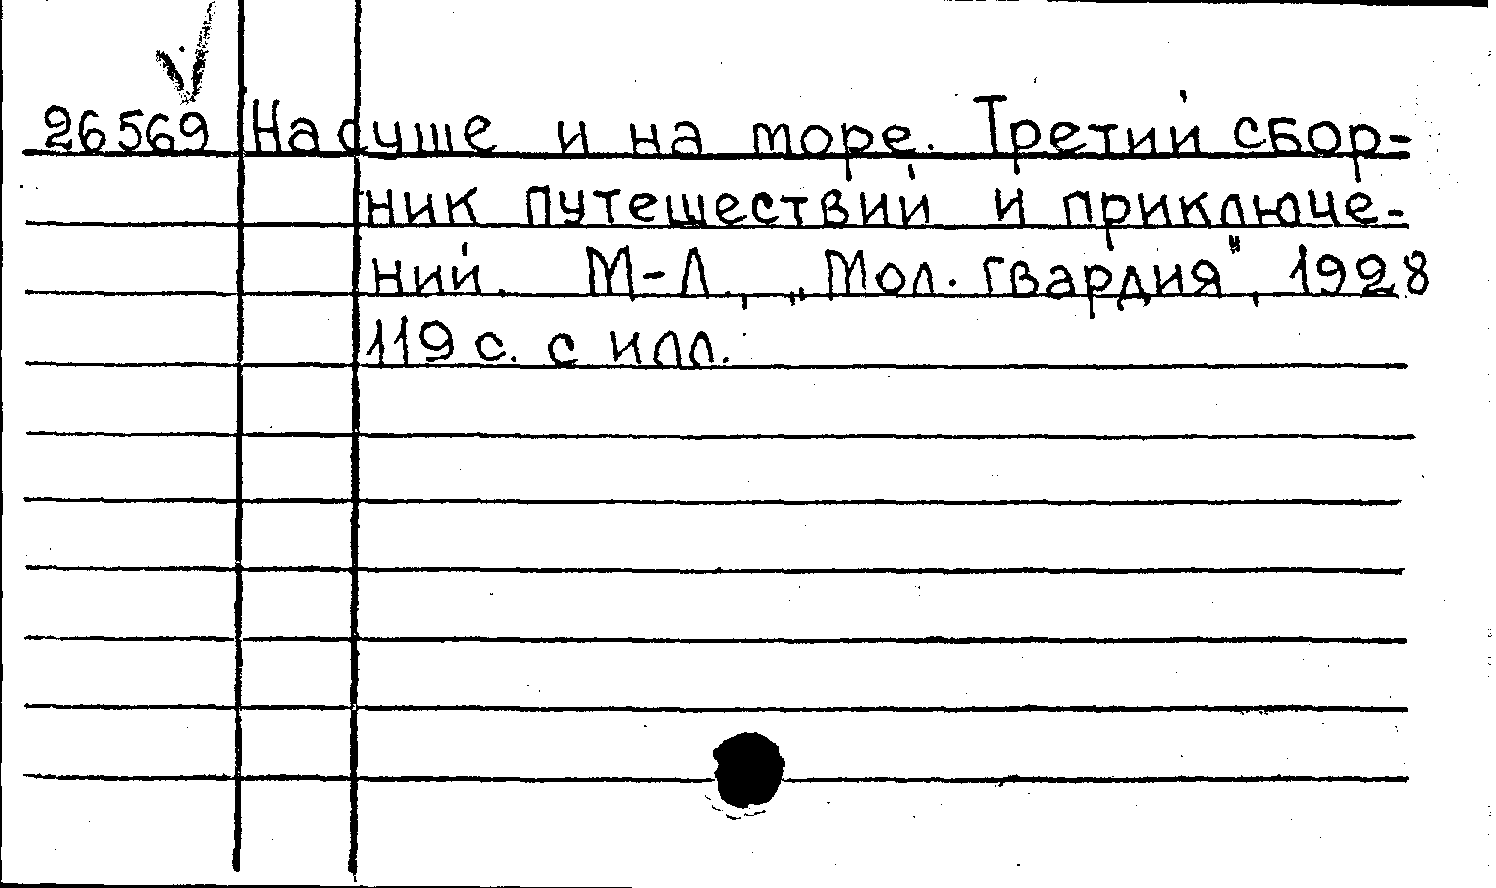 26569 На суше и на море. Третий сбор-
ник путешествий и приключе-
ний. М-Л., „Мол. гвардия", 1928
119 с. с илл.